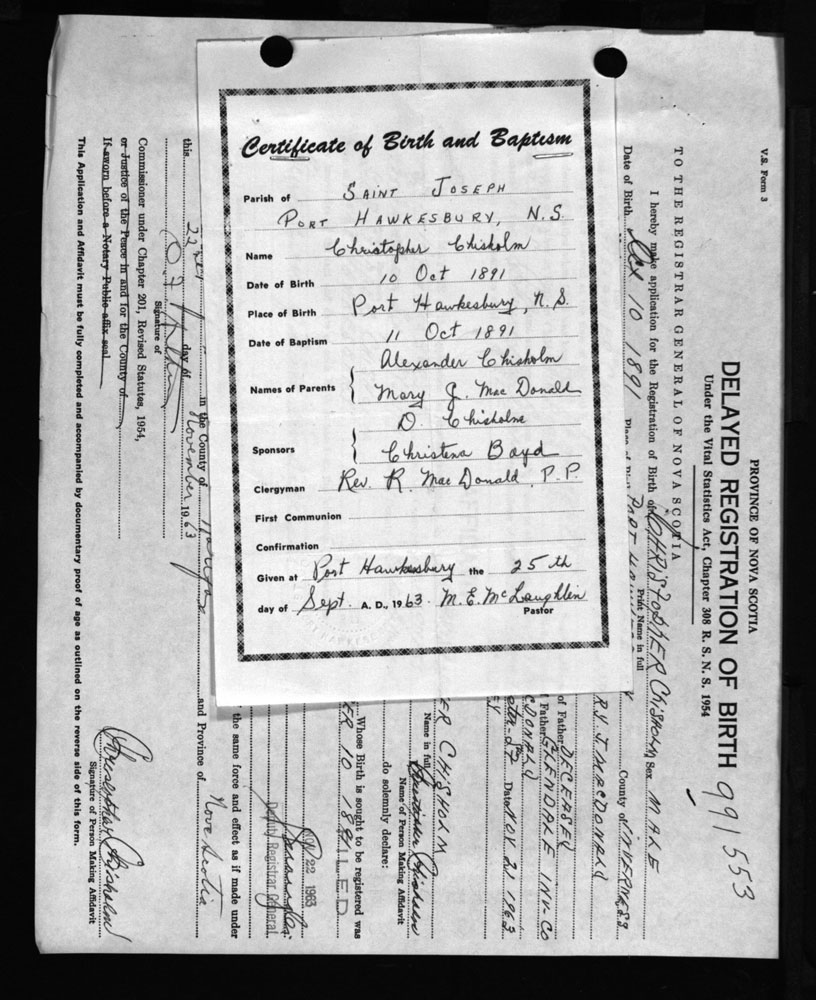 Certificate of Birth and Baptism
Parish of SAINT JOSEPH
PORT HAWKESBURY, N.S.
Name Christopher Chisholm
Date of Birth 10 Oct 1891
Place of Birth Port Hawkesbury, N.S.
Date of Baptism 11 Oct 1891
Names of Parents { Alexander Chisholm
Mary J. Mac Donald
Sponsors { D. Chisholm
Christena Boyd
Clergyman Rev. R. Mac Donald, P.P.
First Communion
Confirmation
Given at Port Hawkesbury the 25th
day of Sept. A. D., 1963. M. E. McLaughlin
Pastor
V.S. Form 3
PROVINCE OF NOVA SCOTIA
DELAYED REGISTRATION OF BIRTH 991553
Under the Vital Statistics Act, Chapter 308 R. S. N. S. 1954
TO THE REGISTRAR GENERAL OF NOVA SCOTIA
I hereby make application for the Registration of Birth of CHRISTOPHER CHISHOLM Sex MALE
Print Name in full
Date of Birth Oct 10 1891 Place of PORT County of INVERNESS
RY J. MACDONALD
of Father DECEASED
Father GLENDALE INV-CO
CDONALD
Date NOV. 21 1963
ER CHISHOLM
Name in full
Name of Person Making Affidavit
do solemnly declare:
Whose Birth is sought to be registered was
ER 10 1891
FILED
NOV 22 1963
Deputy Registrar General
the same force and effect as if made under
in the County of and Province of Nova Scotia
this 22nd day of November 1963
Signature of
Commissioner under Chapter 201, Revised Statutes, 1954,
or Justice of the Peace in and for the County of
If sworn before a Notary Public affix seal
Christopher Chisholm
Signature of Person Making Affidavit
This Application and Affidavit must be fully completed and accompanied by documentary proof of age as outlined on the reverse side of this form.